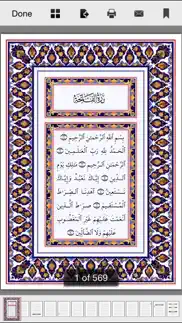 Done
سُورَةُ الْفَاتِحَةِ
بِسْمِ اللَّهِ الرَّحْمَٰنِ الرَّحِيمِ
الْحَمْدُ لِلَّهِ رَبِّ الْعَٰلَمِينَ
الرَّحْمَٰنِ الرَّحِيمِ مَٰلِكِ يَوْمِ
الدِّينِ إِيَّاكَ نَعْبُدُ وَإِيَّاكَ
نَسْتَعِينُ اهْدِنَا الصِّرَٰطَ
الْمُسْتَقِيمَ صِرَٰطَ الَّذِينَ
أَنْعَمْتَ عَلَيْهِمْ غَيْرِ الْمَغْضُوبِ
عَلَيْهِمْ وَلَا الضَّالِّينَ
1 of 569